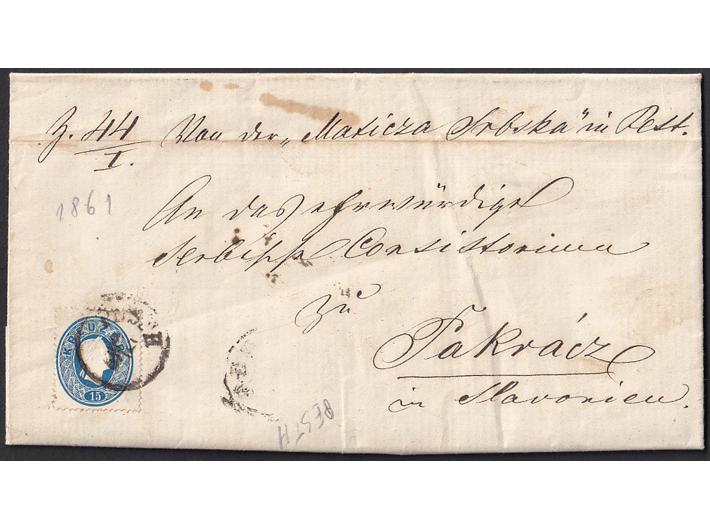 Z. 44/I. Von der „Maticza Srbska“ in Pest.
1861
An das ehrwürdige
Serbische Consistorium
zu
Pakrácz
in Slavonien.
KREUZER
15
PESTH